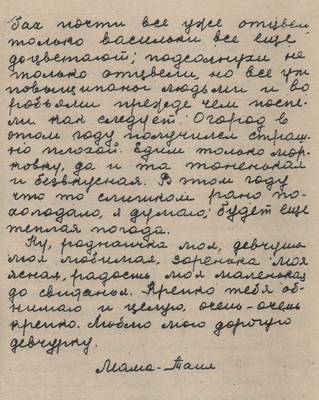 Вах почти все уже отцвели
только васильки все еще
доцветают; подсолнухи не
только отцвели, но все уж
повыщипаны людьми и во
робьями прежде чем поспе-
ли как следует. Огород в
этом году получился страш-
но плохой. Едим только мор-
ковку, да и та тоненькая
и безвкусная. В этом году
что то слишком рано по-
холодало, я думаю, будет еще
теплая погода.
Ну, роднашка моя, девчушь
моя любимая, зоренька моя
ясная, радость моя маленькая
до свиданья. Крепко тебя об-
нимаю и целую, очень-очень
крепко. Люблю мою дорогую
девчурку.
Мама-Таил